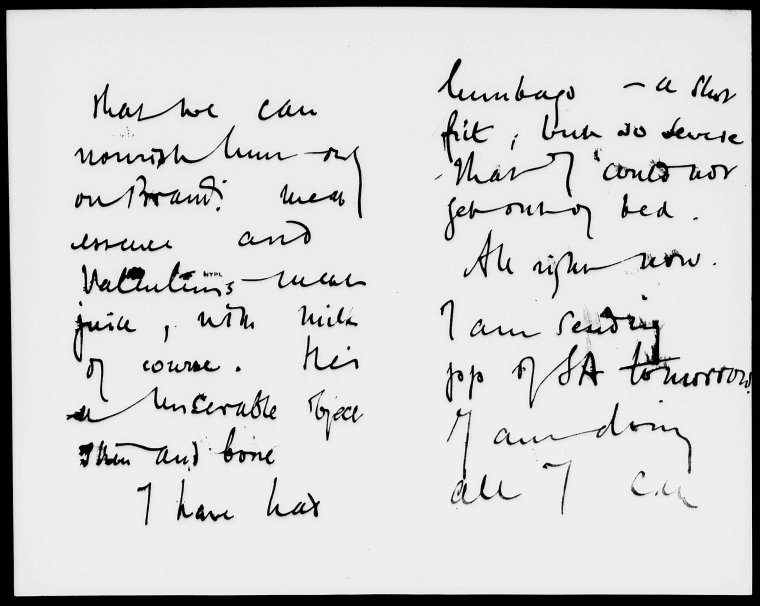 that we can
nourish him only
on Brand's meat
essence and
Valentine's meat
juice, with milk
of course. He is
a miserable object
skin and bone
I have had
lumbago – a short
fit, but so severe
that I could not
get out of bed.
All right now.
I am sending
pp of SA tomorrow.
I am doing
all I can
NYPL